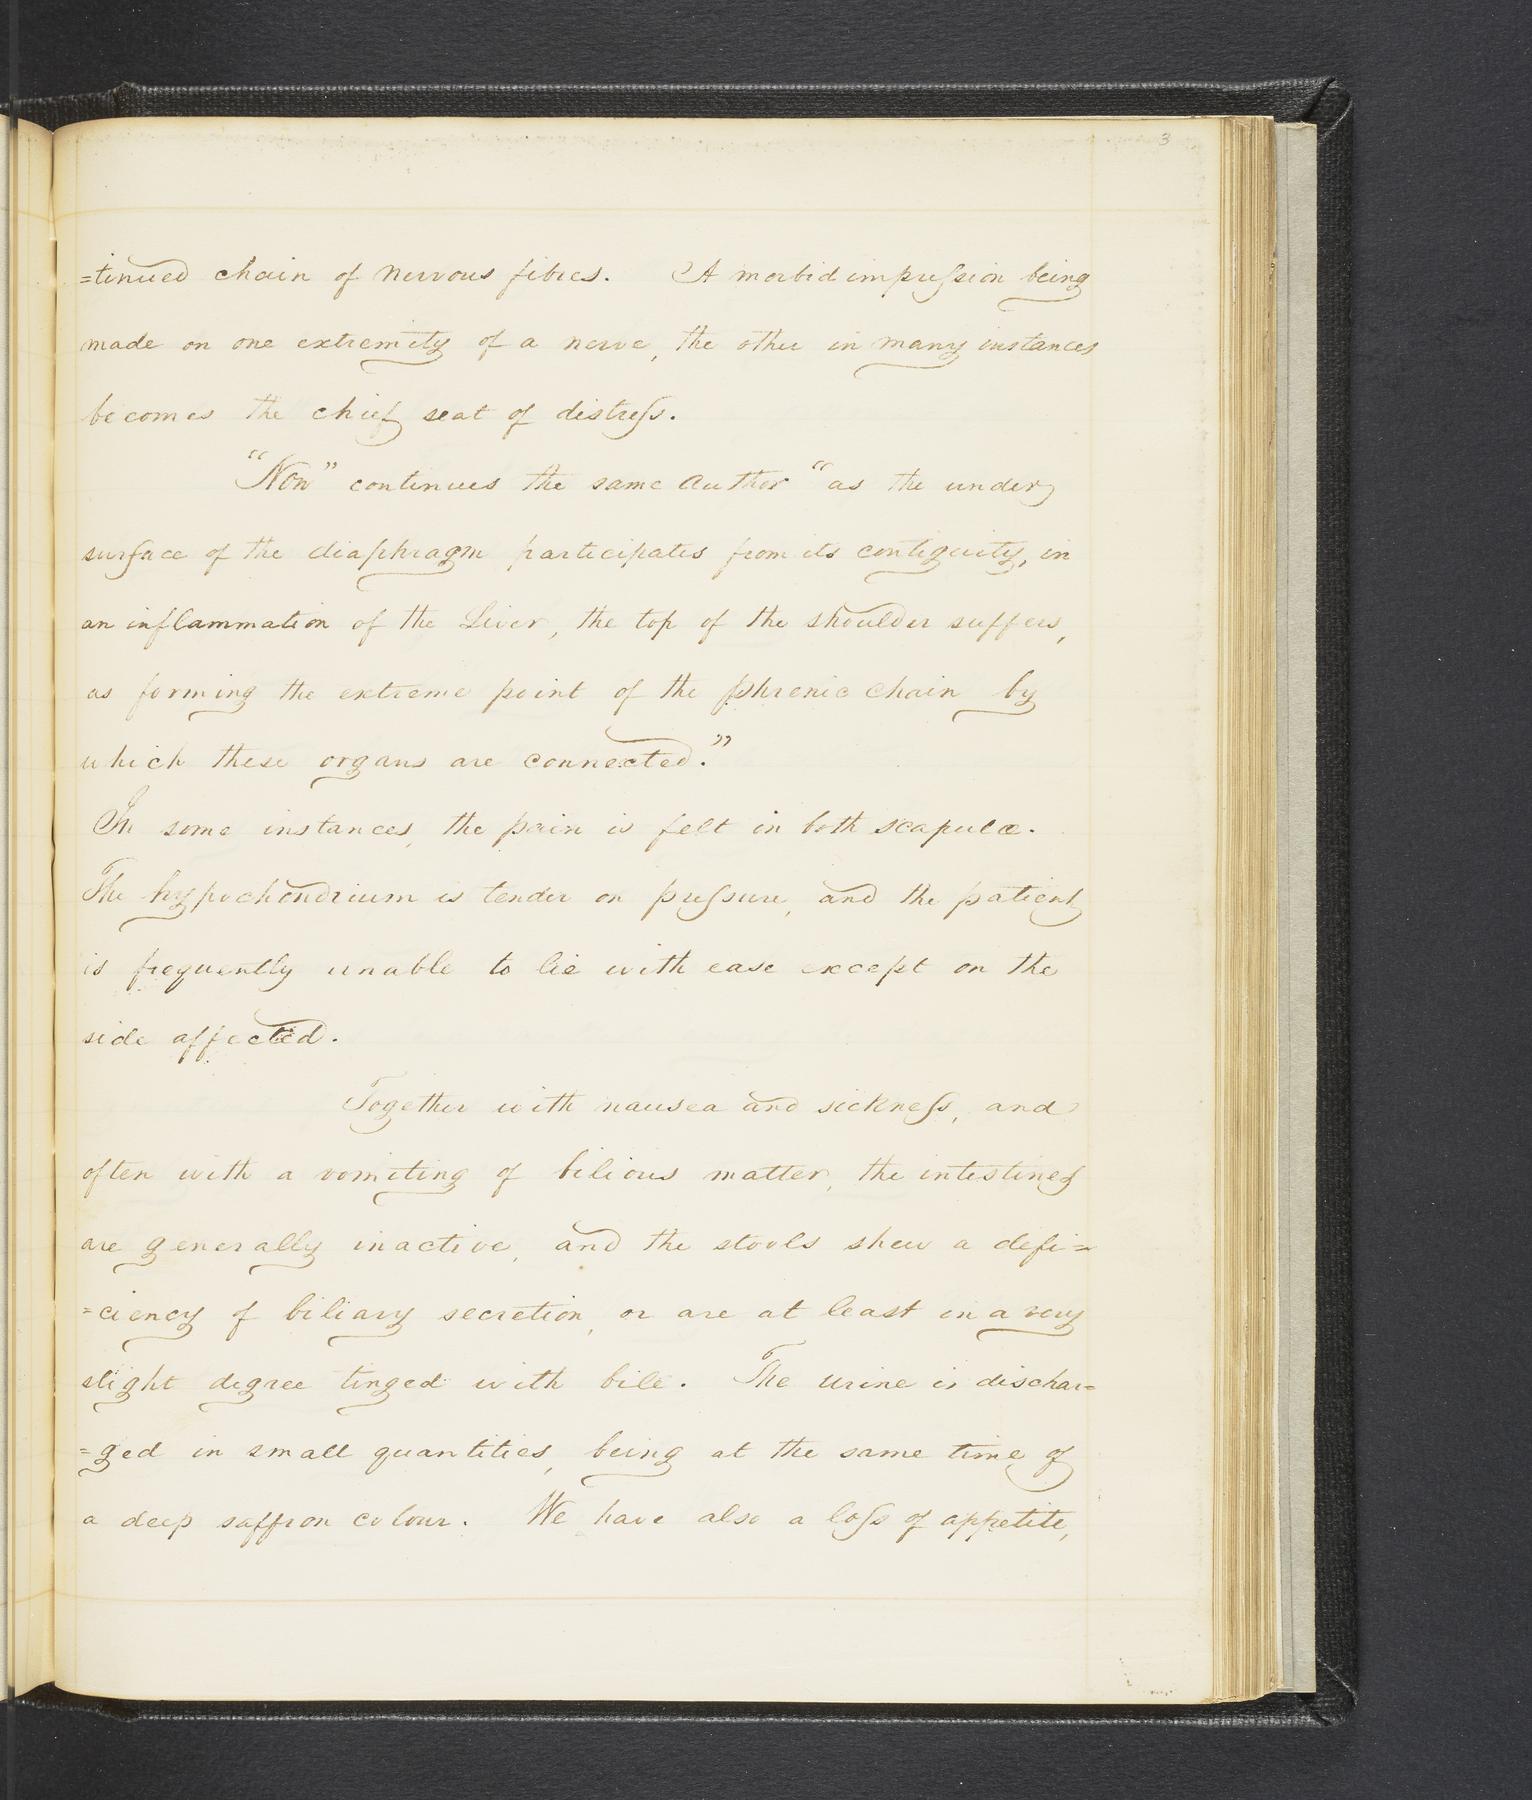 3
=tinued chain of nervous fibres. A morbid impreſsion being
made on one extremity of a nerve, the other in many instances
becomes the chief seat of distreſs.
"Now" continues the same author "as the under
surface of the diaphragm participates from its contiguity, in
an inflammation of the Liver, the top of the shoulder suffers,
as forming the extreme point of the phrenic chain by
which these organs are connected."
In some instances, the pain is felt in both scapulæ.
The hypochondrium is tender on preſsure, and the patient
is frequently unable to lie with ease except on the
side affected.
Together with nausea and sickneſs, and
often with a vomiting of bilious matter, the intestines
are generally inactive, and the stools shew a defi=
=ciency of biliary secretion, or are at least in a very
slight degree tinged with bile. The urine is dischar=
=ged in small quantities, being at the same time of
a deep saffron colour. We have also a loſs of appetite,